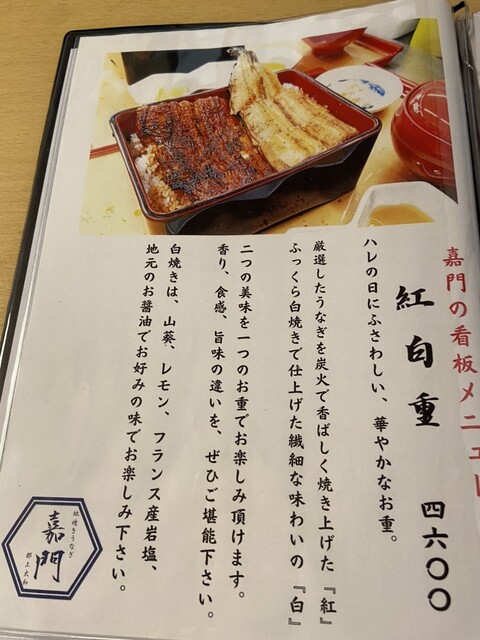 嘉門の看板メニュー
紅白重 四六〇〇
ハレの日にふさわしい、華やかなお重。
厳選したうなぎを炭火で香ばしく焼き上げた『紅』
ふっくら白焼きで仕上げた繊細な味わいの『白』
二つの美味を一つのお重でお楽しみ頂けます。
香り、食感、旨味の違いを、ぜひご堪能下さい。
白焼きは、山葵、レモン、フランス産岩塩、
地元のお醤油でお好みの味でお楽しみ下さい。
炭焼きうなぎ
嘉門
郡上大和